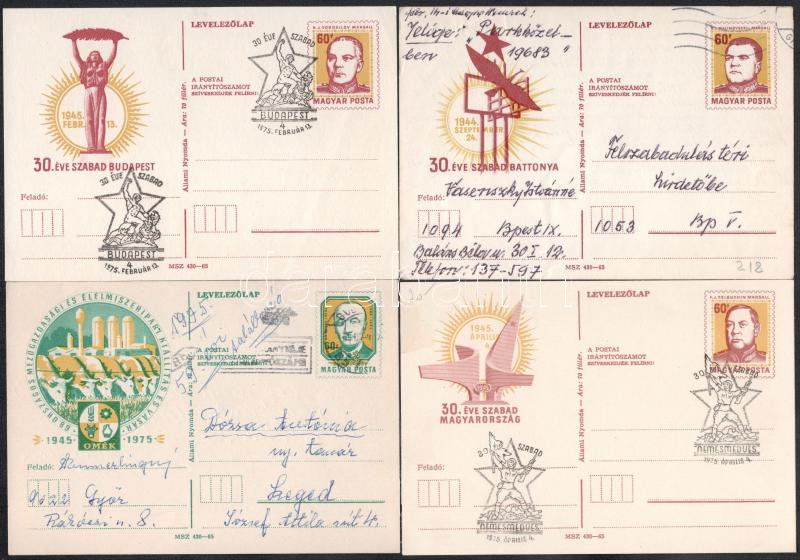 LEVELEZŐLAP
30 ÉVE SZABAD
BUDAPEST
4
1975. FEBRUÁR 13.
60f
MAGYAR POSTA
A POSTAI
IRÁNYÍTÓSZÁMOT
SZÍVESKEDJÉK FELÍRNI!
1945.
FEBR. 13.
30. ÉVE SZABAD BUDAPEST
Állami Nyomda – Ára: 70 fillér.
Feladó:
30 ÉVE SZABAD
BUDAPEST
4
1975. FEBRUÁR 13.
MSZ 430–65
Jelige: "Parkközel-
ben 19683"
LEVELEZŐLAP
60f
MAGYAR POSTA
A POSTAI
IRÁNYÍTÓSZÁMOT
SZÍVESKEDJÉK FELÍRNI!
1944.
SZEPTEMBER
24.
30. ÉVE SZABAD BATTONYA
Állami Nyomda – Ára: 70 fillér.
Feladó:
Felszabadulás téri
hirdetőbe
1094 Bpest IX.
Balázs Béla u. 30 I. 12.
Telefon: 137-597
1053 Bp V.
MSZ 430–65
218
69. ORSZÁGOS MEZŐGAZDASÁGI ÉS ÉLELMISZERIPARI KIÁLLÍTÁS ÉS VÁSÁR
1945 1975
OMÉK
LEVELEZŐLAP
1975.
60f
MAGYAR POSTA
A POSTAI
IRÁNYÍTÓSZÁMOT
Állami Nyomda
Feladó:
Győr
8.
Dózsa
Szeged
József Attila
MSZ 430–65
LEVELEZŐLAP
F. I. TOLBUHIN MARSALL
60f
MAGYAR POSTA
A POSTAI
IRÁNYÍTÓSZÁMOT
SZÍVESKEDJÉK FELÍRNI!
1945.
ÁPRILIS
4.
30. ÉVE SZABAD
MAGYARORSZÁG
Állami Nyomda – Ára: 70 fillér.
30 ÉVE SZABAD
NEMESMEDVES
1975. ÁPRILIS 4.
Feladó:
30 ÉVE SZABAD
NEMESMEDVES
1975. ÁPRILIS 4.
MSZ 430–65
darabanth